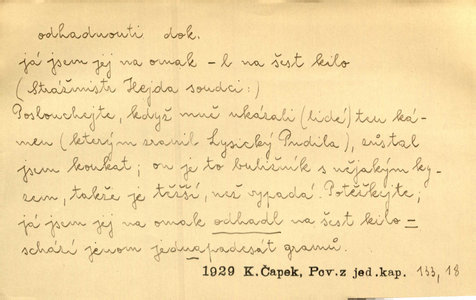 odhadnouti dok.
já jsem jej na omak – l na šest kilo
(Strážmistr Hejda soudci:)
Poslouchejte, když mně ukázali (lidé) ten ká-
men (kterým zranil Lysický Pudila), zůstal
jsem koukat; on je to buližník s nějakým ky-
zem, takže je těžší, než vypadá. Potěžkejte;
já jsem jej na omak odhadl na šest kilo –
schází jenom jednapadesát gramů.
1929 K. Čapek, Pov. z jed. kap. 133, 18